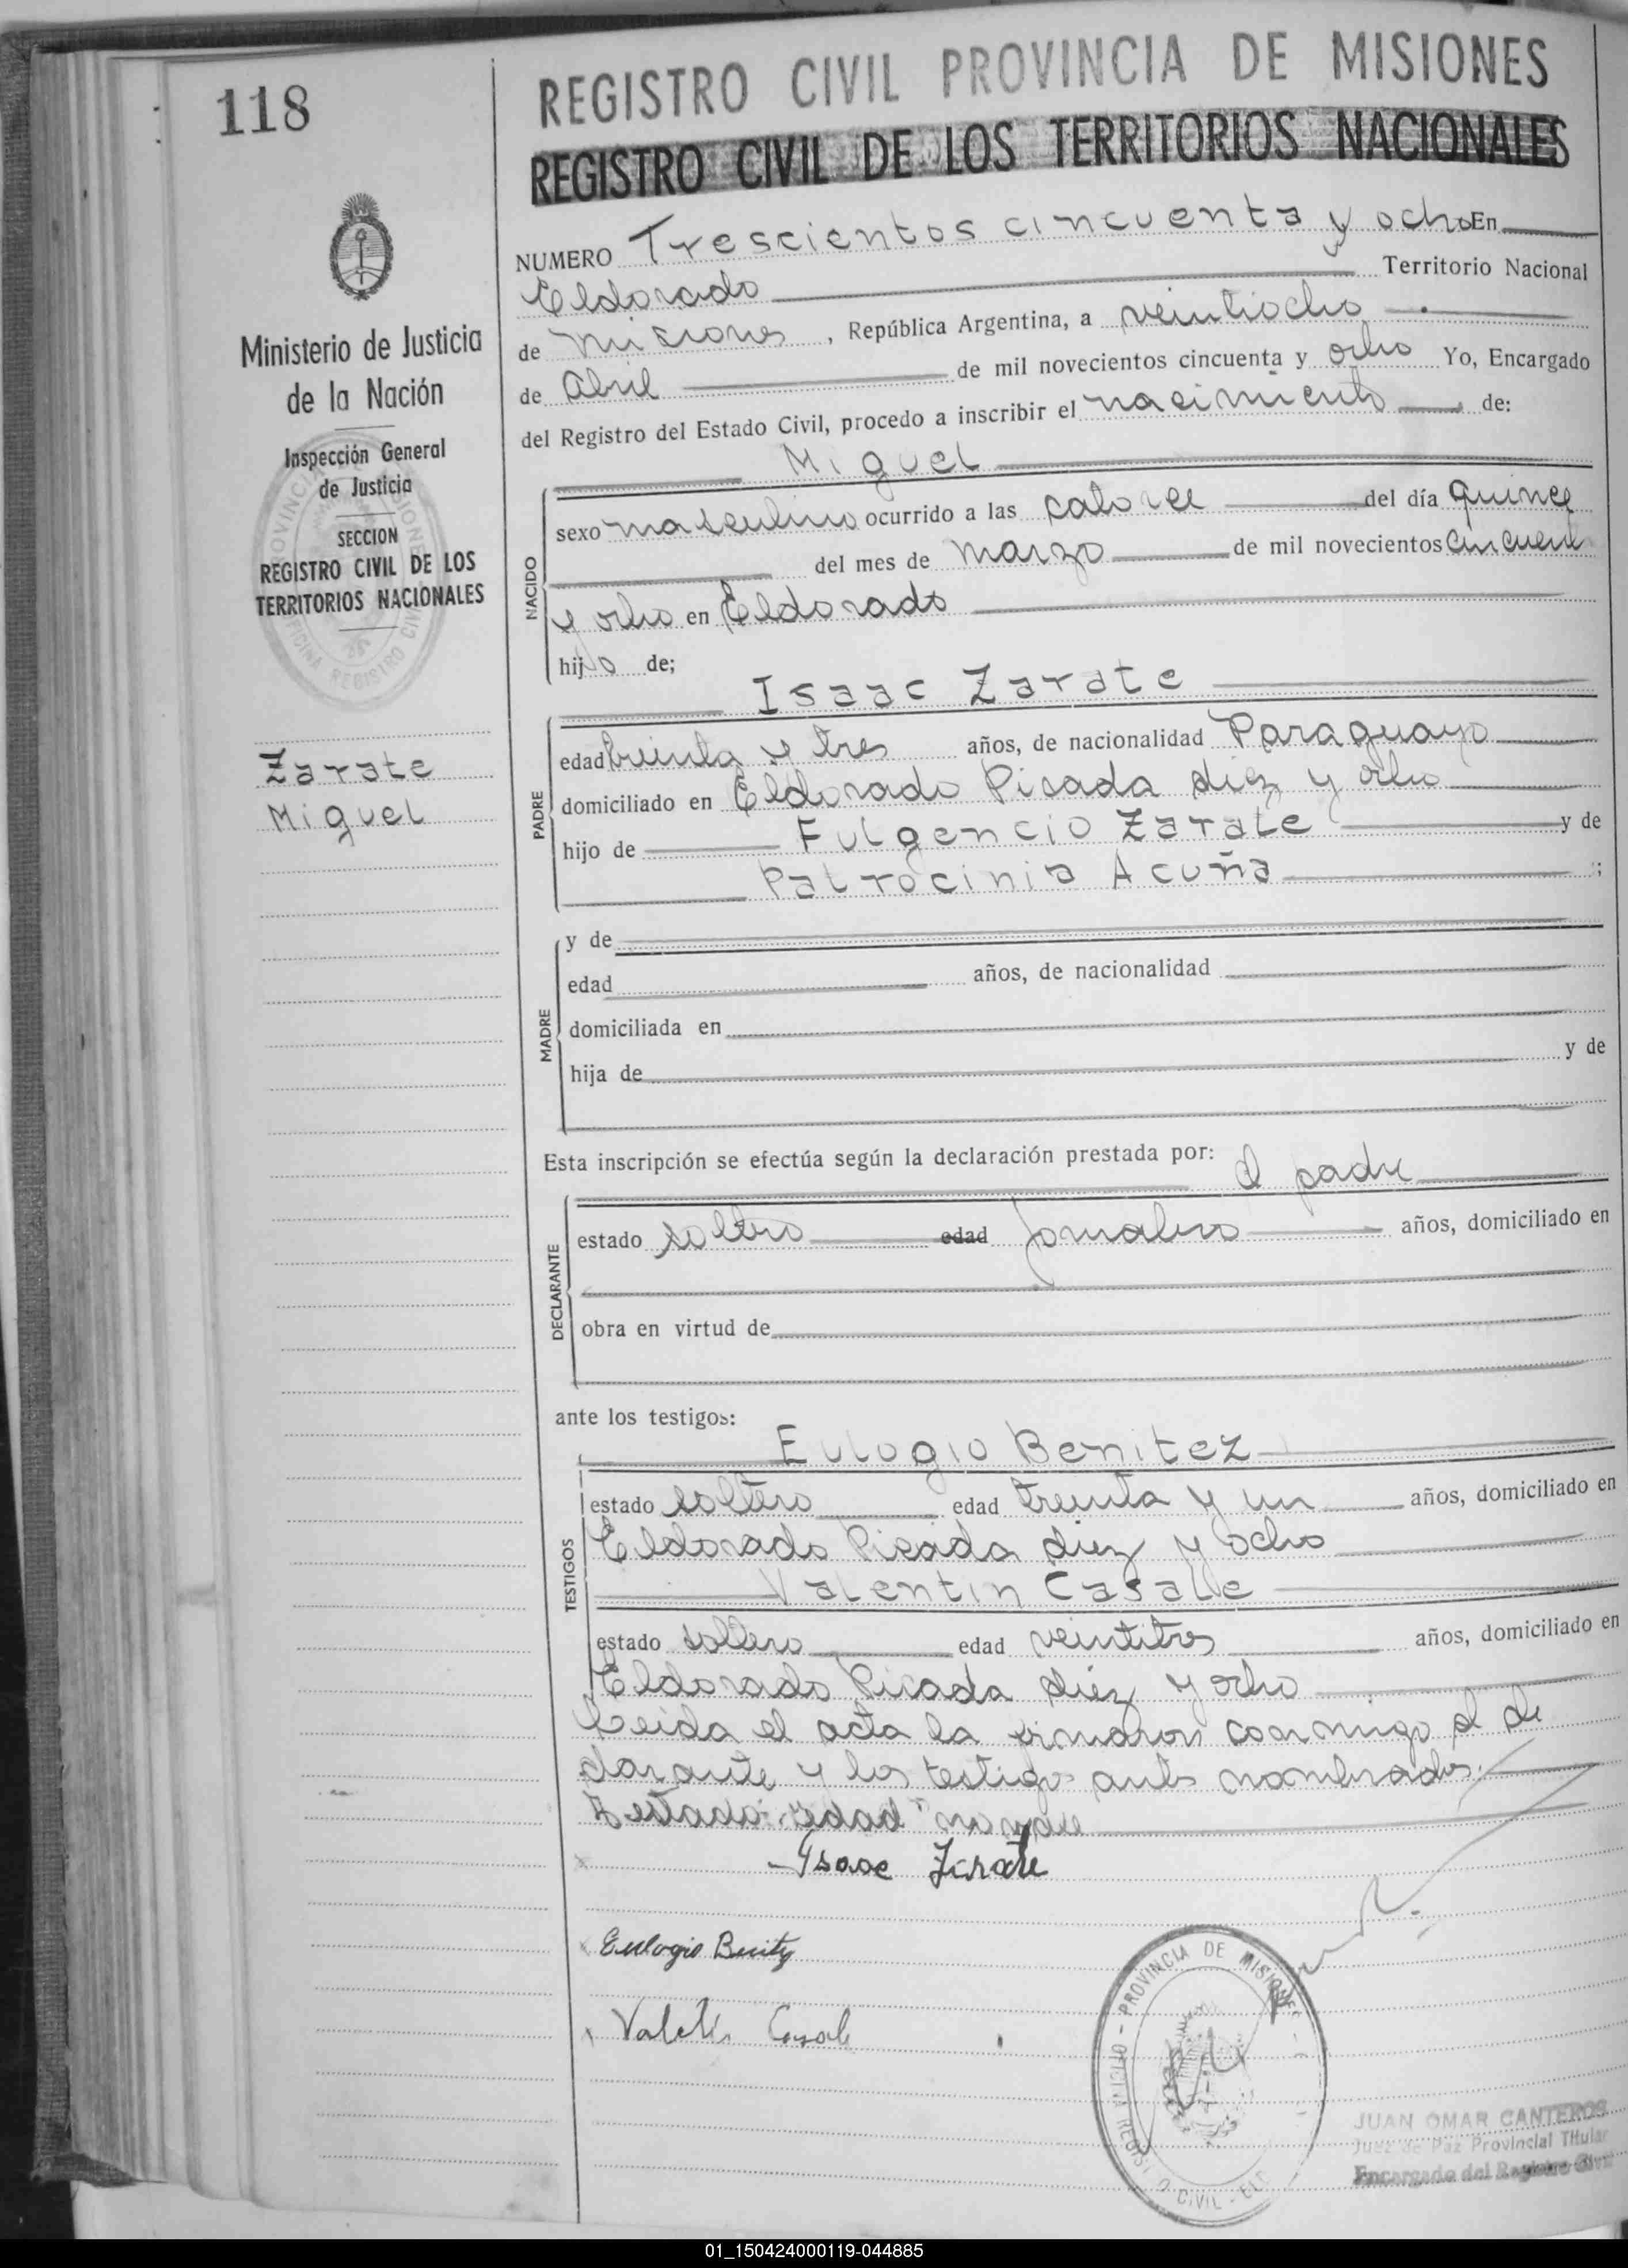 118
REGISTRO CIVIL PROVINCIA DE MISIONES
REGISTRO CIVIL DE LOS TERRITORIOS NACIONALES
Ministerio de Justicia
de la Nación
Inspección General
de Justicia
SECCION
REGISTRO CIVIL DE LOS
TERRITORIOS NACIONALES
Zarate
Miguel
NUMERO Trescientos cincuenta y ocho En
Eldorado Territorio Nacional
de Misiones, República Argentina, a veintiocho
de Abril de mil novecientos cincuenta y ocho Yo, Encargado
del Registro del Estado Civil, procedo a inscribir el nacimiento de:
Miguel
NACIDO
sexo masculino ocurrido a las catorce del día quince
del mes de marzo de mil novecientos cincuent
y ocho en Eldorado
hijo de;
Isaac Zarate
PADRE
edad treinta y tres años, de nacionalidad Paraguayo
domiciliado en Eldorado Picada diez y ocho
hijo de Fulgencio Zarate y de
Patrocinia Acuña ;
MADRE
y de
edad años, de nacionalidad
domiciliada en
hija de y de
Esta inscripción se efectúa según la declaración prestada por: el padre
DECLARANTE
estado soltero edad jornalero años, domiciliado en
obra en virtud de
ante los testigos:
Eulogio Benitez
TESTIGOS
estado soltero edad treinta y un años, domiciliado en
Eldorado Picada diez y ocho
Valentin Casale
estado soltero edad veintitres años, domiciliado en
Eldorado Picada diez y ocho
Leida el acta la firmaron conmigo el de
clarante y los testigos antes nombrados.
Testado: "edad" no vale
Ysaac Zarate
Eulogio Benitez
Valetin Casale
PROVINCIA DE MISIONES
CIVIL
JUAN OMAR CANTEROS
Juez de Paz Provincial Titular
Encargado del Registro Civil
01_150424000119-044885